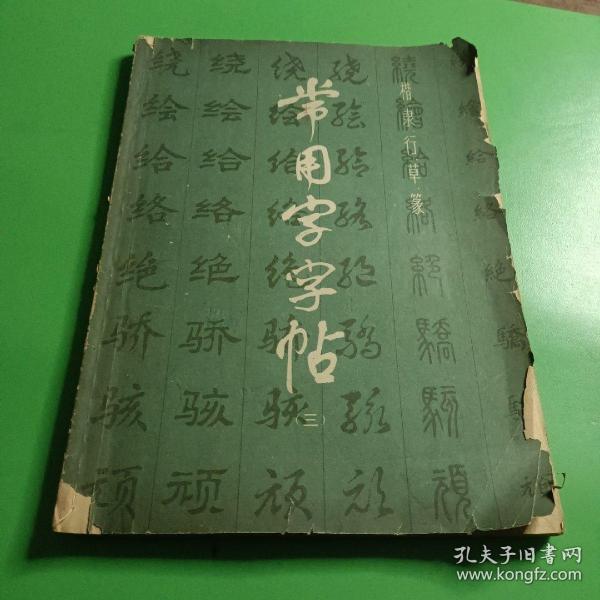 常用字字帖
（三）
楷隶行草篆
绕 绕 绕 绕 繞
绘 绘 绘 绘 繪
给 给 给 给 給
络 络 络 络 絡
绝 绝 绝 绝 絕 絕
骄 骄 骄 骄 驕 驕
骇 骇 骇 骇 駭
顽 顽 顽 顽 頑
孔夫子旧书网
www.kongfz.com